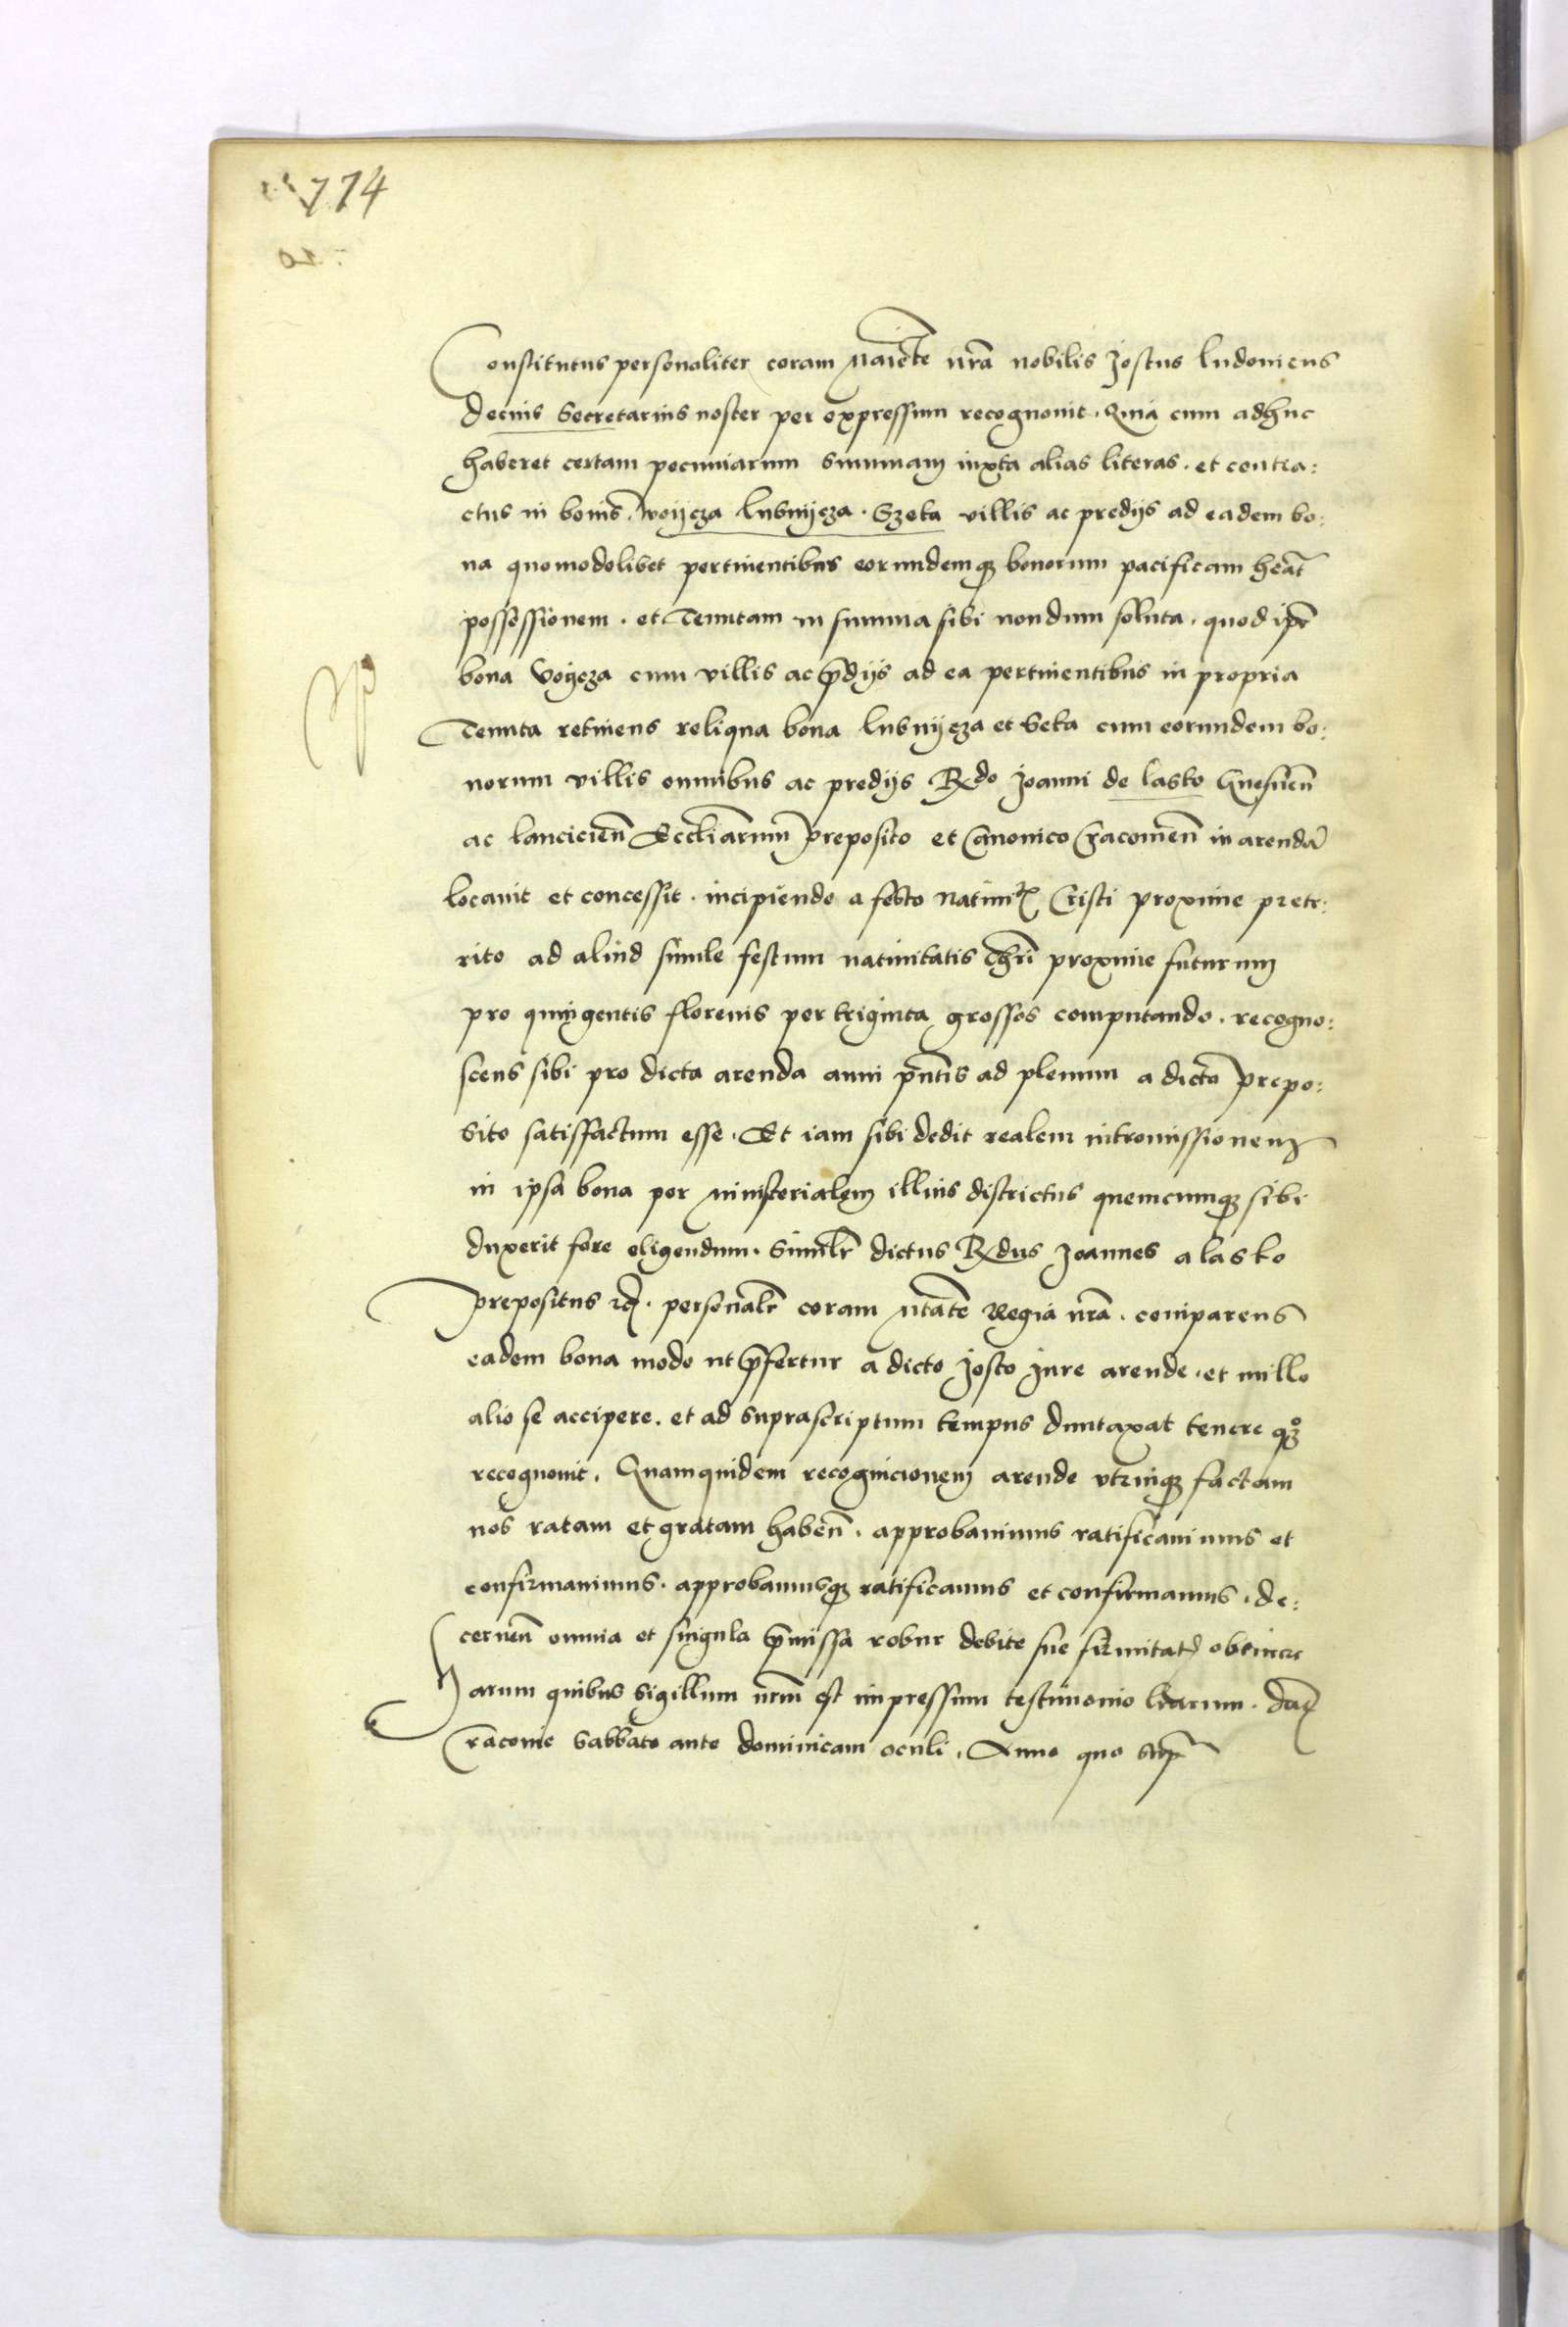 774
Constitutus personaliter coram Maiestate nrã nobilis Jostus ludovicus
decius Secretarius noster per expressum recognovit. Quia cum adhuc
haberet certam pecuniarum summam iuxta alias literas. et contra:
ctus in bonis. woÿcza lubnÿcza. Szeka villis ac predÿs ad eadem bo:
na quomodolibet pertinentibus eorundemq; bonorum pacificam heat
possessionem. et Tenutam in summa sibi nondum soluta. quod ipse
bona Voÿcza cum villis ac p̃dÿs ad ea pertinentibus in propria
Tenuta retinens reliqua bona lubnÿcza et Seka cum eorundem bo:
norum villis omnibus ac predÿs Rdo Joanni de lasko Gnesneñ
ac lancicieñ Eccliarum preposito et Canonico Cracovieñ in arendã
locavit et concessit. incipiendo a festo nativitatis Cristi proxime prete:
rito ad aliud simile festum nativitatis Chri proxime futurum
pro quingentis florenis per triginta grossos computando. recogno:
scens sibi pro dicta arenda anni pñtis ad plenum a dicto prepo:
sito satisfactum esse. Et iam sibi dedit realem intromissionem
in ipsa bona per ministerialem illius districtus quemcumq; sibi
duxerit fore eligendum. Similr dictus Rdus Joannes a lasko
prepositus personalr coram Mtate Regia nrã. comparens
eadem bona modo ut p̃fertur a dicto Josto Jure arende. et nullo
alio se accipere. et ad suprascriptum tempus duntaxat tenere
recognovit. Quamquidem recognicionem arende utrinq; factam
nos ratam et gratam habeñ. approbavimus ratificavimus et
confirmavimus. approbamusq; ratificamus et confirmamus. de:
cerneñ omnia et singula p̃missa robur debite sue firmitatis obtinere
Harum quibus sigillum nrm est impressum testimonio lrarum. Dat
Cracovie Sabbato ante dominicam oculi. Anno quo sup